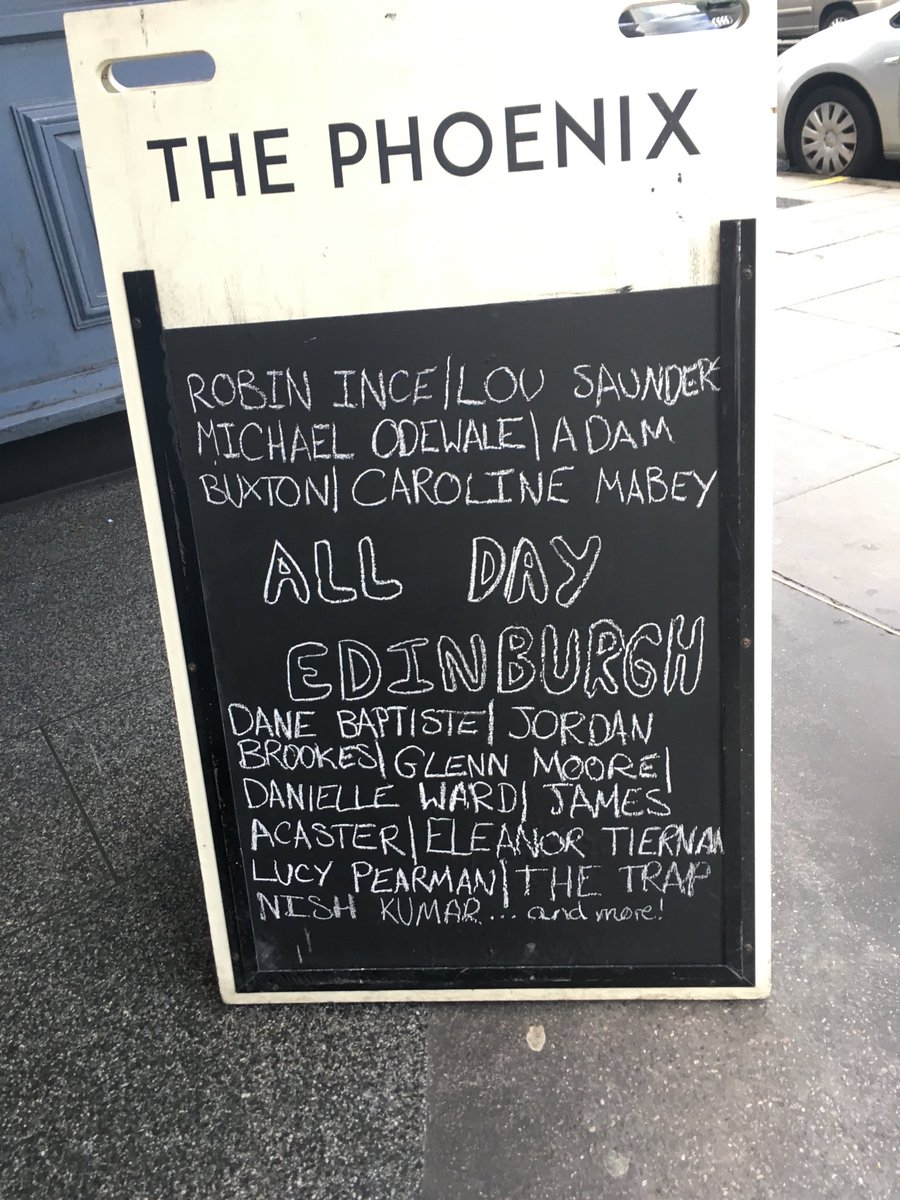 THE PHOENIX
ROBIN INCE|LOU SAUNDERS
MICHAEL ODEWALE|ADAM
BUXTON|CAROLINE MABEY
ALL DAY
EDINBURGH
DANE BAPTISTE|JORDAN
BROOKES|GLENN MOORE|
DANIELLE WARD|JAMES
ACASTER|ELEANOR TIERNAN
LUCY PEARMAN|THE TRAP
NISH KUMAR... and more!